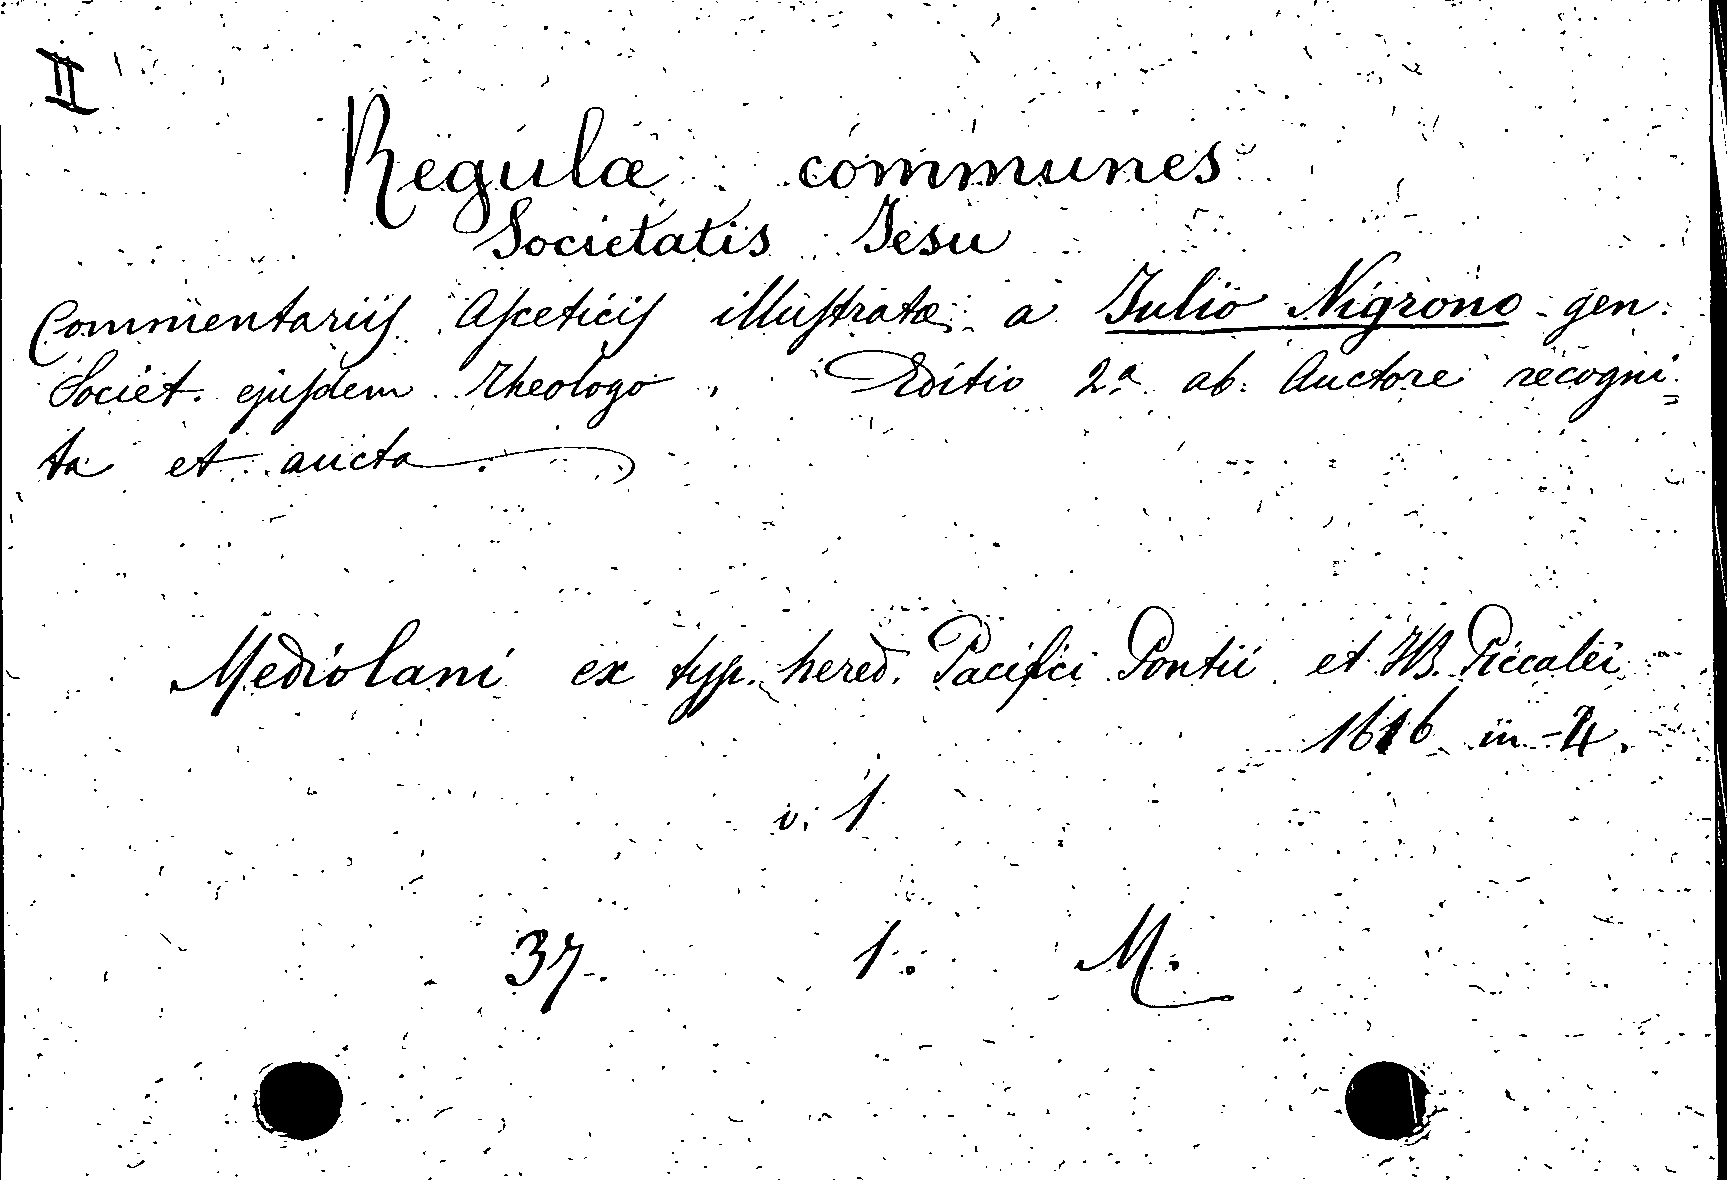 II
Regulæ communes
Societatis Jesu
Commentariis Aſceticiſ illuſtratæ a Julio Nigrono gen.
Societ. ejuſdem theologo. Editio 2ª ab Auctore recogni=
ta et aucta.
Mediolani ex typ. hered. Pacifici Pontii et JB. Piccalei
1616 in-4.
v. 1
37. 1. M.